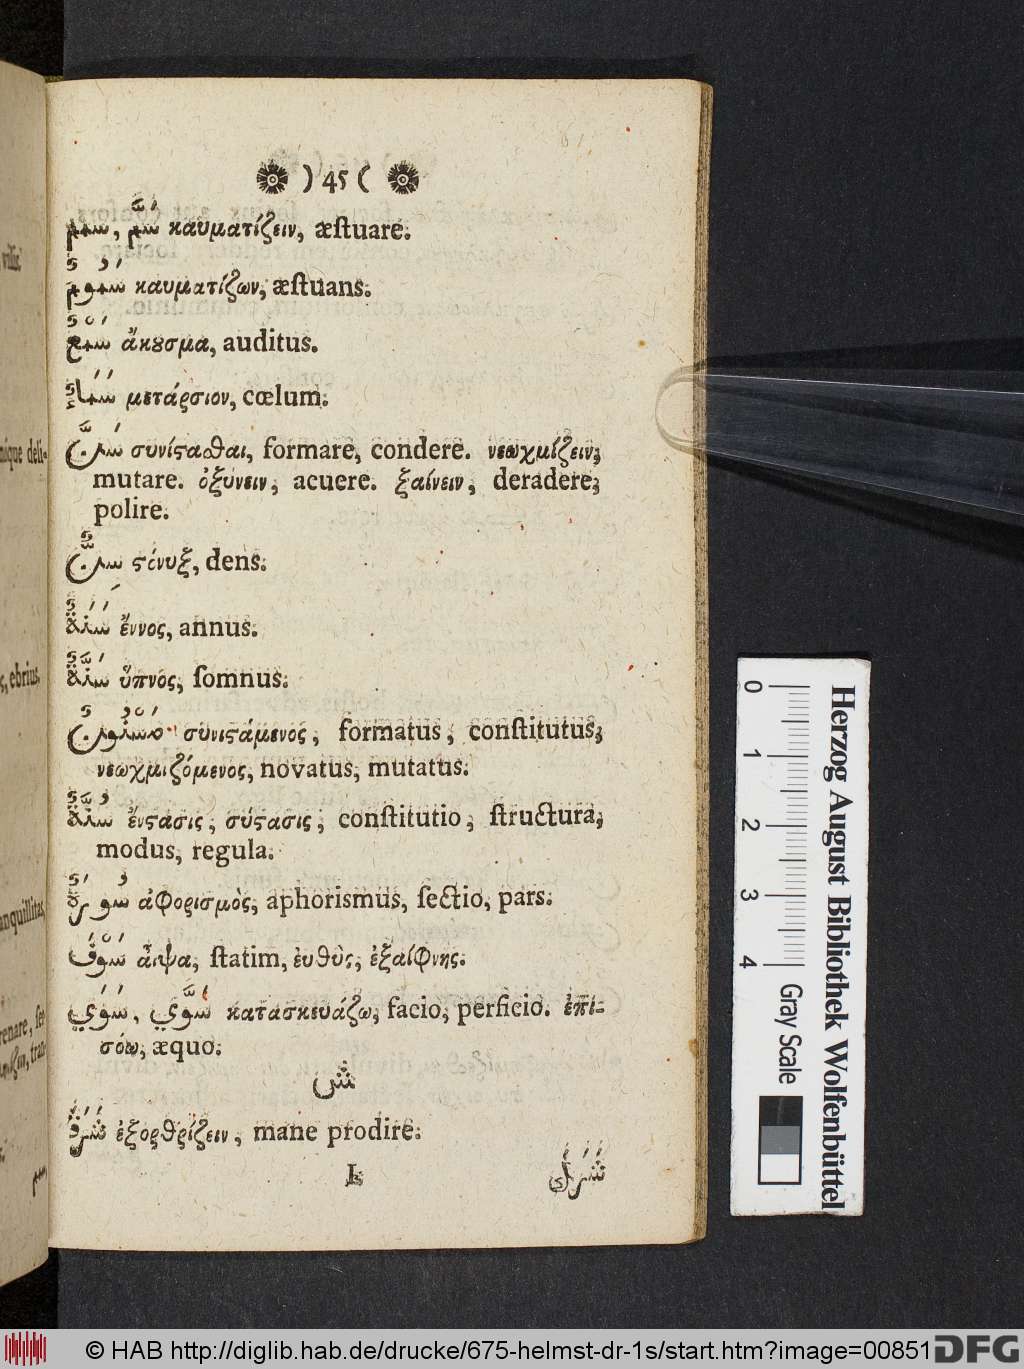 ) 45 (
سمم, سَمَّ καυματίζειν, æstuare.
سَمُومٌ καυματίζων, æstuans.
سَمْعٌ ἄκȣσμα, auditus.
سَمَاءٌ μετάρσιον, cœlum.
سَنَّ συνίςαϑαι, formare, condere. νεωχμίζειν,
mutare. ὀξύνειν, acuere. ξαίνειν, deradere,
polire.
سِنٌّ ςένυξ, dens.
سَنَةٌ ἔννος, annus.
سِنَةٌ ὕπνος, ſomnus.
مَسْنُونٌ συνιςάμενος, formatus, conſtitutus,
νεωχμιζόμενος, novatus, mutatus.
سُنَّةٌ ἔνςασις, σύςασις, conſtitutio, ſtructura,
modus, regula.
سُورَةٌ ἀφορισμὸς, aphorismus, ſectio, pars.
سَوْفَ αἶψα, ſtatim, ἐυθὺς, ἐξαίφνης.
سَوَي, سَوَّي κατασκευάζω, facio, perficio. ἐπι-
σόω, æquo.
ش
شَرَقَ ἐξορθρίζειν, mane prodire.
L
vilis.
nique deli-
s, ebrius,
anquillitas,
© HAB http://diglib.hab.de/drucke/675-helmst-dr-1s/start.htm?image=00851
DFG
Herzog August Bibliothek Wolfenbüttel
0 1 2 3 4 Gray Scale